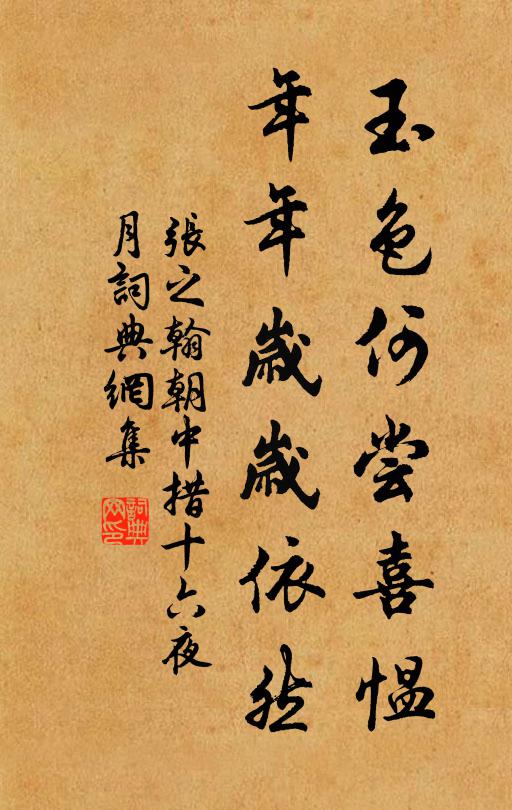 玉色何嘗喜愠
年年歲歲依然
張之翰朝中措十六夜
月詞典網集
詞典
網印